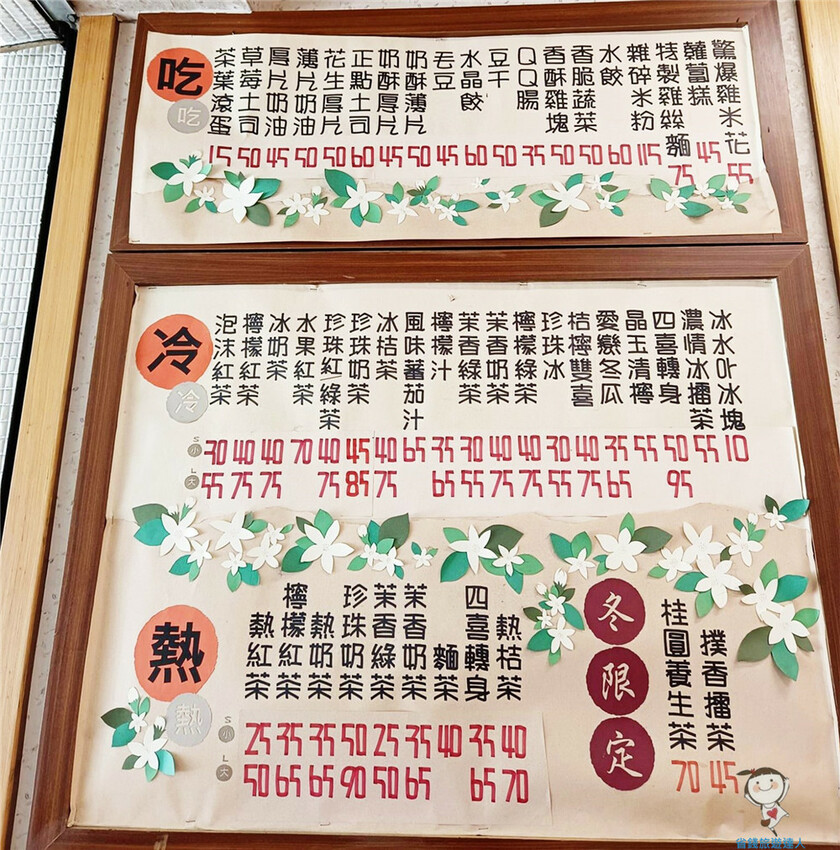 吃
吃
茶葉滾蛋
草莓土司
厚片奶油
薄片奶油
花生厚片
正點土司
奶酥厚片
奶酥薄片
毛豆
水晶餃
豆干
QQ腸
香酥雞塊
香脆蔬菜
水餃
雜碎米粉
特製雞絲麵
蘿蔔糕
驚爆雞米花
15 50 45 50 50 60 45 50 45 60 50 35 50 50 60 115 75 45 55
冷
冷
泡沫紅茶
檸檬紅茶
冰奶茶
水果紅茶
珍珠紅/綠茶
珍珠奶茶
冰桔茶
風味蕃茄汁
檸檬汁
茉香綠茶
茉香奶茶
檸檬綠茶
珍珠冰
桔檸雙喜
愛戀冬瓜
晶玉清檸
四喜轉身
濃情冰擂茶
冰水卟冰塊
S 小 30 40 40 70 40 45 40 65 35 30 40 40 30 40 35 55 50 55 10
L 大 55 75 75 75 85 75 65 55 75 75 55 75 65 95
熱
熱
熱紅茶
檸檬紅茶
熱奶茶
珍珠奶茶
茉香綠茶
茉香奶茶
麵茶
四喜轉身
熱桔茶
S 小 25 35 35 50 25 35 40 35 40
L 大 50 65 65 90 50 65 65 70
冬限定
桂圓養生茶
撲香擂茶
70 45
省錢旅遊達人